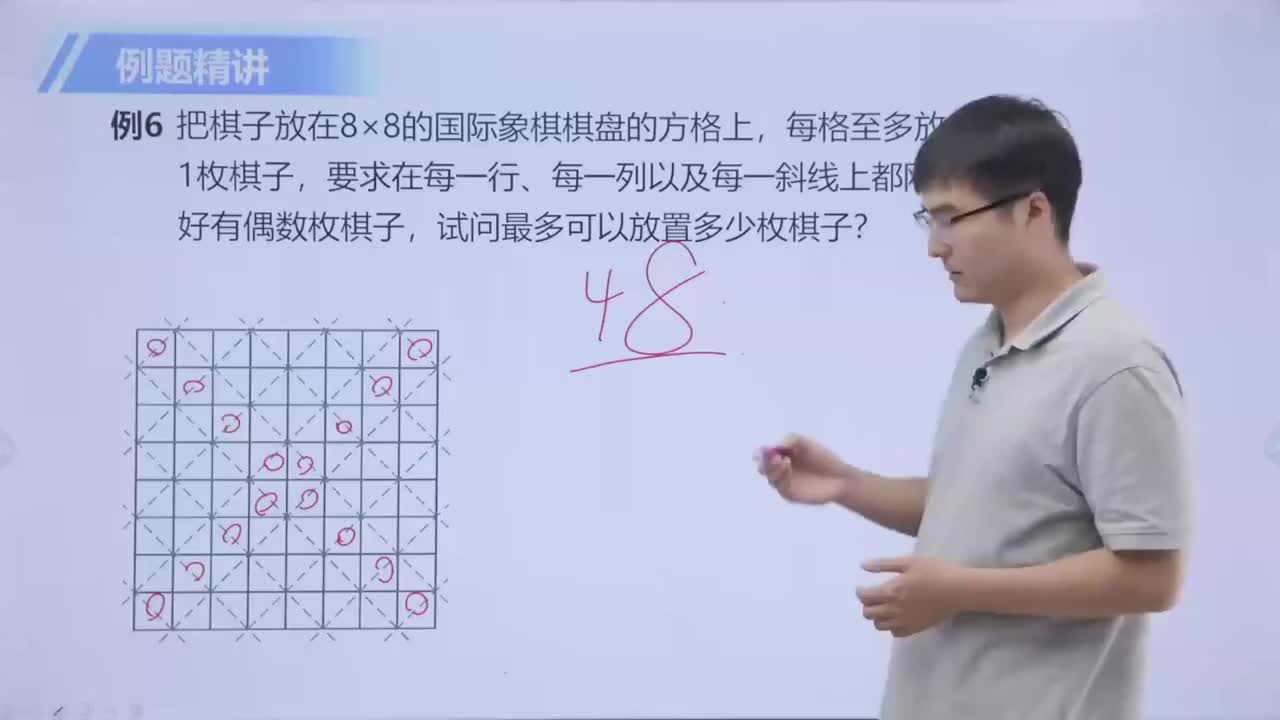 例题精讲
例6 把棋子放在8×8的国际象棋棋盘的方格上，每格至多放
1枚棋子，要求在每一行、每一列以及每一斜线上都
好有偶数枚棋子，试问最多可以放置多少枚棋子？
48